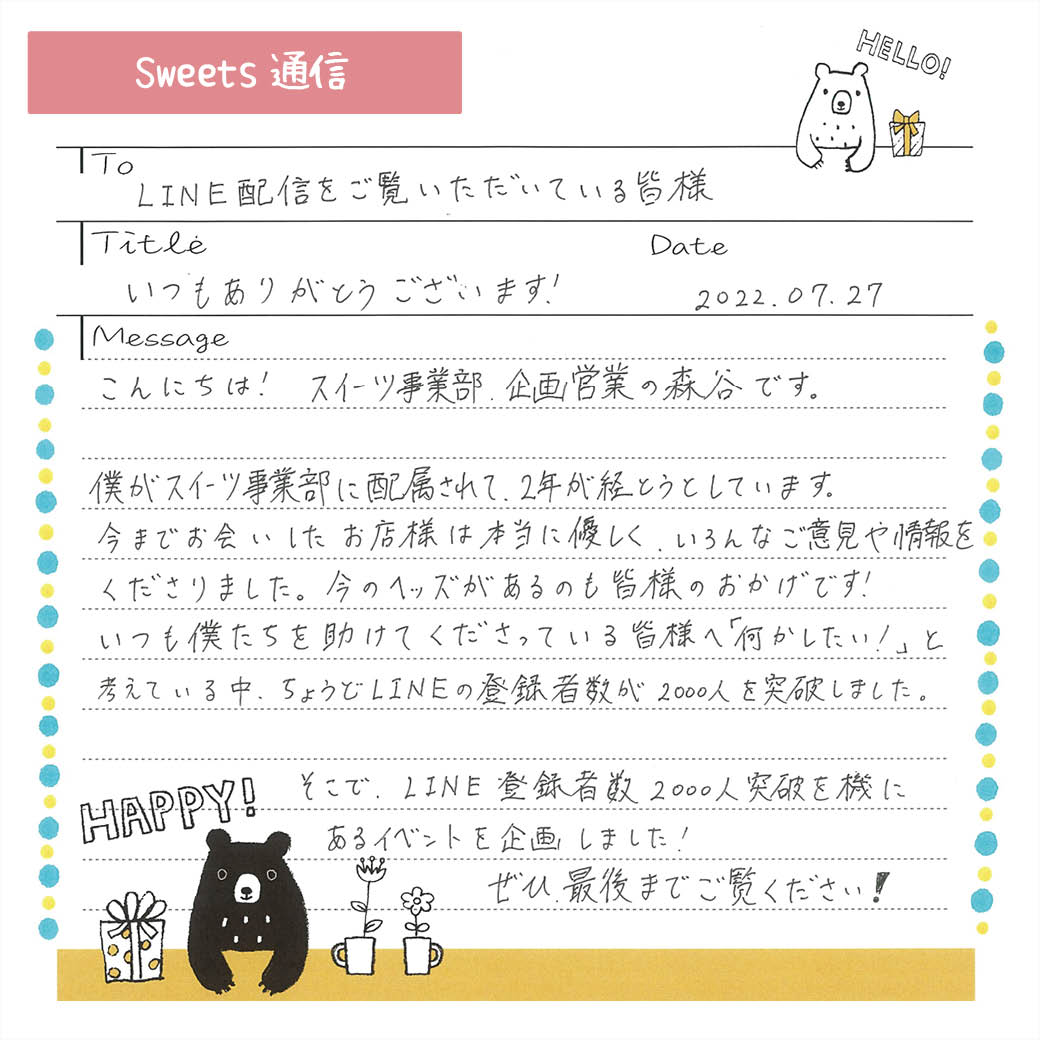 Sweets 通信
HELLO!
To
LINE配信をご覧いただいている皆様
Title
Date
いつもありがとうございます!
2022.07.27
Message
こんにちは! スイーツ事業部、企画営業の森谷です。
僕がスイーツ事業部に配属されて、2年が経とうとしています。
今までお会いしたお店様は本当に優しく、いろんなご意見や情報を
くださりました。今のヘッズがあるのも皆様のおかげです!
いつも僕たちを助けてくださっている皆様へ「何かしたい!」と
考えている中、ちょうどLINEの登録者数が2000人を突破しました。
HAPPY!
そこで、LINE登録者数2000人突破を機に
あるイベントを企画しました!
ぜひ、最後までご覧ください!